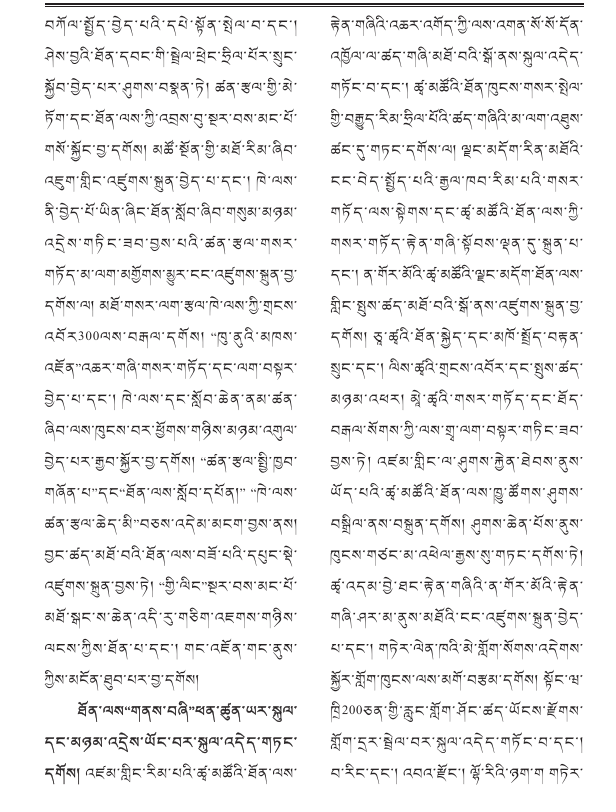 བཀོལ་སྤྱོད་བྱེད་པའི་དཔེ་སྟོན་སྤེལ་བ་དང་།
ཤེས་བྱའི་ཐོན་དབང་གི་སྦྲེལ་ཕྲེང་ཧྲིལ་པོར་སྲུང་
སྐྱོབ་བྱེད་པར་ཤུགས་བསྣན་ཏེ། ཚན་རྩལ་གྱི་མེ་
ཏོག་དང་ཐོན་ལས་ཀྱི་འབྲས་བུ་སྔར་བས་མང་པོ་
གསོ་སྐྱོང་བྱ་དགོས། མཚོ་སྔོན་གྱི་མཐོ་རིམ་ཞིབ་
འཇུག་གླིང་འཛུགས་སྐྲུན་བྱེད་པ་དང་། ཁེ་ལས་
ནི་བྱེད་པོ་ཡིན་ཞིང་ཐོན་སློབ་ཞིབ་གསུམ་མཉམ་
འདྲེས་གཏིང་ཟབ་བྱས་པའི་ཚན་རྩལ་གསར་
གཏོད་མ་ལག་མགྱོགས་མྱུར་ངང་འཛུགས་སྐྲུན་བྱ་
དགོས་ལ། མཐོ་གསར་ལག་རྩལ་ཁེ་ལས་ཀྱི་གྲངས་
འབོར300ལས་བརྒལ་དགོས། “ཁུ་ནུའི་མཁས་
འཛོན”འཆར་གཞི་གསར་གཏོད་དང་ལག་བསྟར་
བྱེད་པ་དང་། ཁེ་ལས་དང་སློབ་ཆེན་ནམ་ཚན་
ཞིབ་ལས་ཁུངས་བར་ཕྱོགས་གཉིས་མཉམ་འགུལ་
བྱེད་པར་རྒྱབ་སྐྱོར་བྱ་དགོས། “ཚན་རྩལ་སྤྱི་ཁྱབ་
གཞོན་པ”དང“ཐོན་ལས་སློབ་དཔོན།” “ཁེ་ལས་
ཚན་རྩལ་ཆེད་མི”བཅས་འདེམ་མངག་བྱས་ནས།
བྱང་ཚད་མཐོ་བའི་ཐོན་ལས་བཟོ་པའི་དཔུང་སྡེ་
འཛུགས་སྐྲུན་བྱས་ཏེ། “གྱི་ལིང”སྔར་བས་མང་པོ་
མཐོ་སྒང་ས་ཆེན་འདི་རུ་གཅིག་འཇགས་གཉིས་
ལངས་ཀྱིས་ཐོན་པ་དང་། གང་འཛོན་གང་ནུས་
ཀྱིས་མངོན་ཐུབ་པར་བྱ་དགོས།
ཐོན་ལས“གནས་བཞི”ཕན་ཚུན་ཡར་སྐུལ་
དང་མཉམ་འདྲེས་ཡོང་བར་སྐུལ་འདེད་གཏང་
དགོས། འཛམ་གླིང་རིམ་པའི་ཚྭ་མཚོའི་ཐོན་ལས་
རྟེན་གཞིའི་འཆར་འགོད་ཀྱི་ལས་འགན་སོ་སོ་དོན་
འཁྱོལ་ལ་ཚད་གཞི་མཐོ་བའི་སྒོ་ནས་སྐུལ་འདེད་
གཏོང་བ་དང་། ཚྭ་མཚོའི་ཐོན་ཁུངས་གསར་སྤེལ་
གྱི་བརྒྱུད་རིམ་ཧྲིལ་པོའི་ཚད་གཞིའི་མ་ལག་འཐུས་
ཚང་དུ་གཏང་དགོས་ལ། ལྗང་མདོག་རིན་མཐོའི་
ངང་བེད་སྤྱོད་པའི་རྒྱལ་ཁབ་རིམ་པའི་གསར་
གཏོད་ལས་སྟེགས་དང་ཚྭ་མཚོའི་ཐོན་ལས་ཀྱི་
གསར་གཏོད་རྟེན་གཞི་སྟོབས་ལྡན་དུ་སྐྲུན་པ་
དང་། ན་གོར་མོའི་ཚྭ་མཚོའི་ལྗང་མདོག་ཐོན་ལས་
གླིང་སྤུས་ཚད་མཐོ་བའི་སྒོ་ནས་འཛུགས་སྐྲུན་བྱ་
དགོས། ཅྭ་ཚྭའི་ཐོན་སྐྱེད་དང་མཁོ་སྤྲོད་བརྟན་
སྲུང་དང་། ལིས་ཚྭའི་གྲངས་འབོར་དང་སྤུས་ཚད་
མཉམ་འཕར། མྱེ་ཚྭའི་གསར་གཏོད་དང་ཐོད་
བརྒལ་སོགས་ཀྱི་ལས་གྲྭ་ལག་བསྟར་གཏིང་ཟབ་
བྱས་ཏེ། འཛམ་གླིང་ལ་ཤུགས་རྐྱེན་ཐེབས་ནུས་
ཡོད་པའི་ཚྭ་མཚོའི་ཐོན་ལས་ཁྱུ་ཚོགས་ཤུགས་
བསྒྲིལ་ནས་བསྐྲུན་དགོས། ཤུགས་ཆེན་པོས་ནུས་
ཁུངས་གཙང་མ་འཕེལ་རྒྱས་སུ་གཏང་དགོས་ཏེ།
ཚྭ་འདམ་བྱེ་ཐང་རྟེན་གཞིའི་ན་གོར་མོའི་རྟེན་
གཞི་ཤར་མ་ནུས་མཐོའི་ངང་འཛུགས་སྐྲུན་བྱེད་
པ་དང་། གཏེར་ལེན་ཁའི་མེ་གློག་སོགས་འདེགས་
སྐྱོར་གློག་ཁུངས་ལས་མགོ་བརྩམ་དགོས། སྟོང་ཝ་
ཁྲི200ཅན་གྱི་རླུང་གློག་ཤོང་ཚད་ཡོངས་རྫོགས་
གློག་དྲར་སྦྲེལ་བར་སྐུལ་འདེད་གཏོང་བ་དང་།
བ་རིང་དང་། འབའ་རྫོང་། ལྷོ་རིའི་ཉག་ག གཏེར་